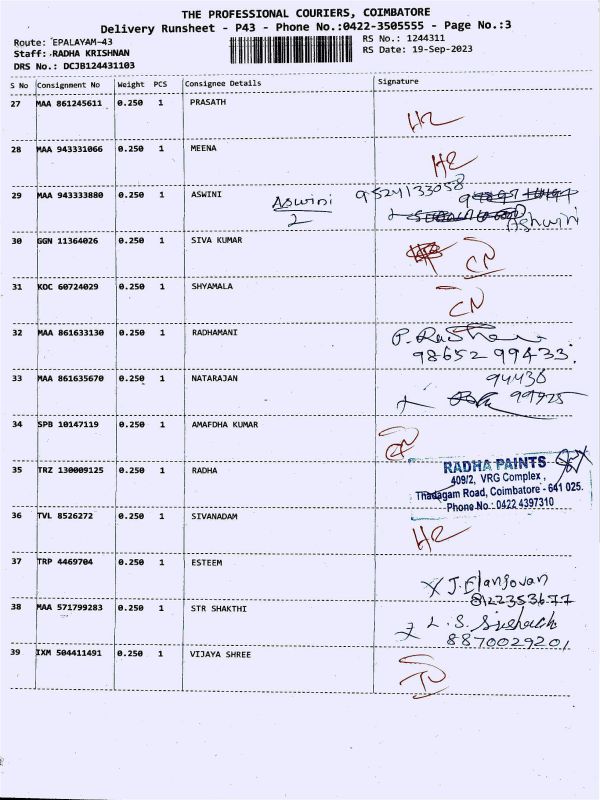 THE PROFESSIONAL COURIERS, COIMBATORE
Delivery Runsheet - P43 - Phone No.:0422-3505555 - Page No.:3
Route: EPALAYAM-43 RS No.: 1244311
Staff: RADHA KRISHNAN RS Date: 19-Sep-2023
DRS No.: DCJB124431103
S No Consignment No Weight PCS Consignee Details Signature
27 MAA 861245611 0.250 1 PRASATH
28 MAA 943331066 0.250 1 MEENA
29 MAA 943333880 0.250 1 ASWINI Aswini 9524133058
2 Ashwini
30 GGN 11364026 0.250 1 SIVA KUMAR CN
31 KOC 60724029 0.250 1 SHYAMALA CN
32 MAA 861633130 0.250 1 RADHAMANI
98652 99433
33 MAA 861635670 0.250 1 NATARAJAN 94436
99925
34 SPB 10147119 0.250 1 AMAFDHA KUMAR CN
35 TRZ 130009125 0.250 1 RADHA RADHA PAINTS
409/2, VRG Complex,
Thadagam Road, Coimbatore - 641 025.
Phone No.: 0422 4397310
36 TVL 8526272 0.250 1 SIVANADAM
37 TRP 4469704 0.250 1 ESTEEM J. Elangovan
8122353677
38 MAA 571799283 0.250 1 STR SHAKTHI L. S.
8870029201
39 IXM 504411491 0.250 1 VIJAYA SHREE